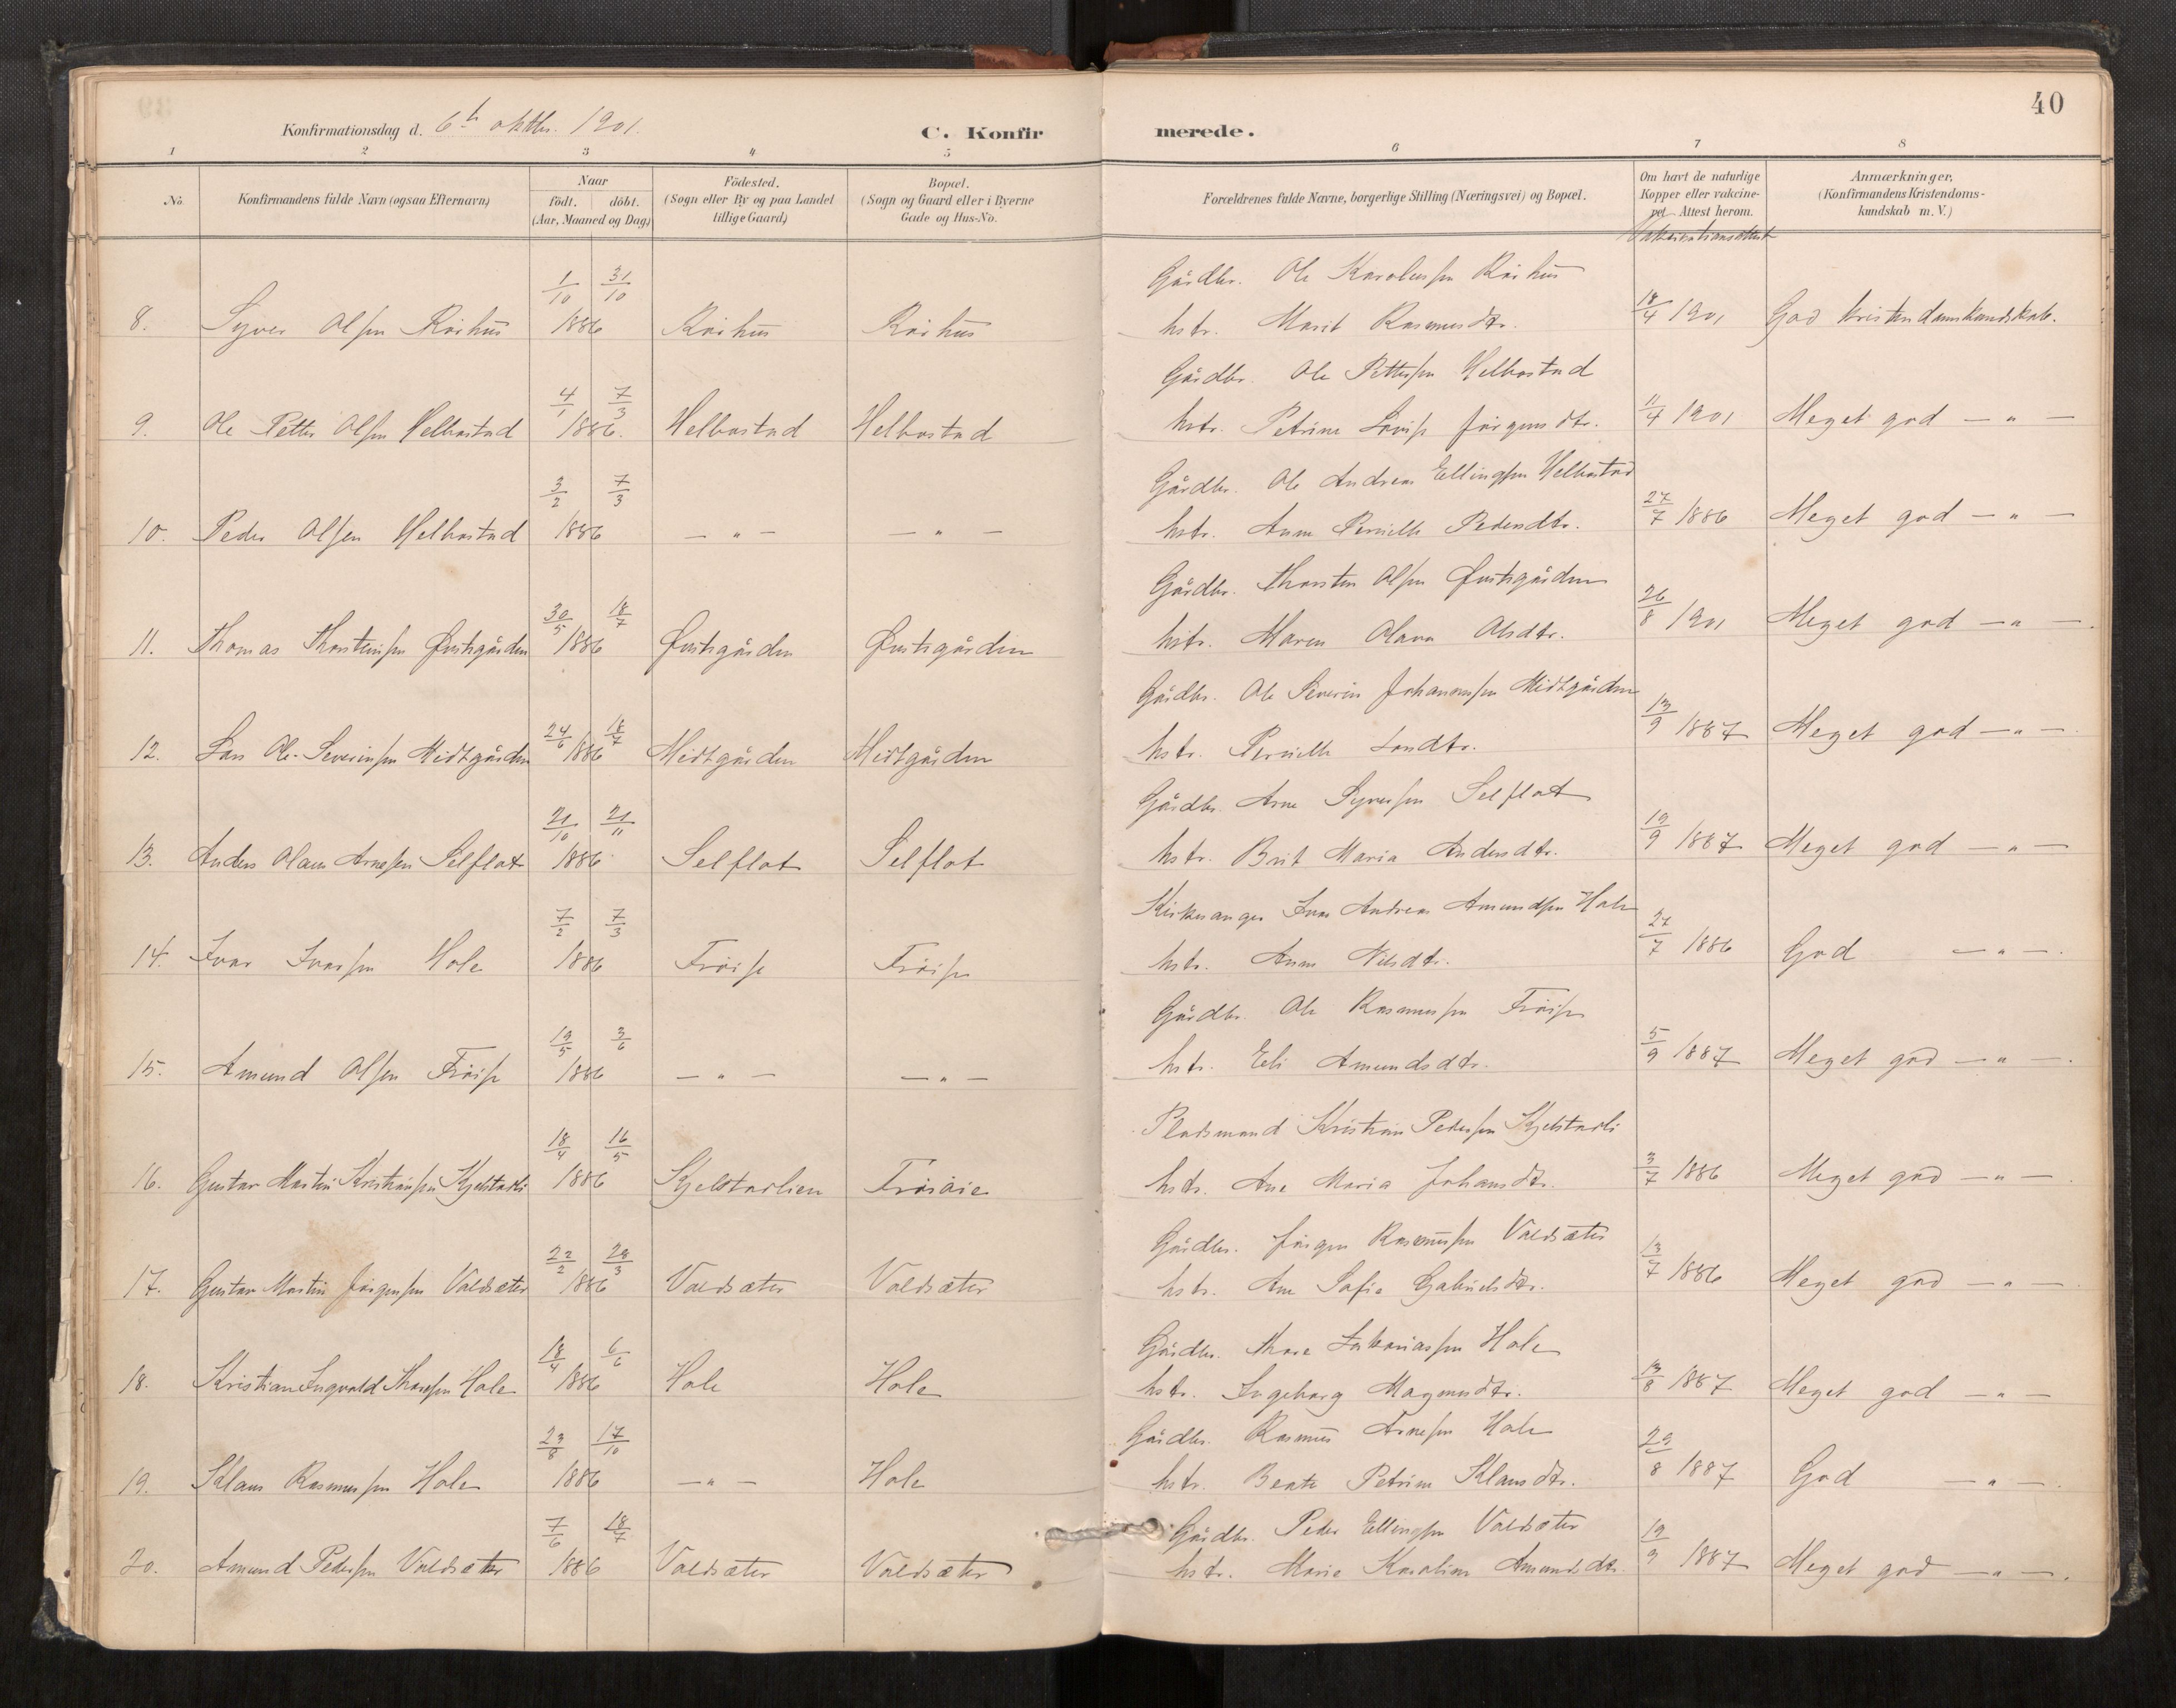 40
Konfirmationsdag d. 6te oktbr. 1901.
C. Konfirmerede.
1 2 3 4 5 6 7 8
No. Konfirmandens fulde Navn (ogsaa Efternavn) Naar födt. döbt. (Aar, Maaned og Dag.) Födested. (Sogn eller By og paa Landet tillige Gaard.) Bopæl. (Sogn og Gaard eller i Byerne Gade og Hus-No. Forældrenes fulde Navne, borgerlige Stilling (Næringsvei) og Bopæl. Om havt de naturlige Kopper eller vakcine- ret. Attest herom. Anmærkninger, (Konfirmandens Kristendoms- kundskab m. V.)
Vakcinationsattest
1/10 31/10 Gårdbr. Ole Karolussen Róshus
8. Syver Olsen Róshus 1886 Róshus Róshus hstr. Marit Rasmusdtr. 18/4 1901 God kristendomskundskab.
4/1 7/3 Gårdbr. Ole Pettersen Helbostad
9. Ole Petter Olsen Helbostad 1886. Helbostad Helbostad hstr. Petrine Lovise Jórgensdtr. 11/4 1901 Meget god — " —
3/2 7/3 Gårdbr. Ole Andreas Ellingsen Helbostad
10. Peder Olsen Helbostad 1886 — " — — " — hstr. Anne Pernille Pedersdtr. 27/7 1886 Meget god — " —
30/5 18/7 Gårdbr. Thorsten Olsen Østigården
11. Thomas Thorstensen Østigården 1886 Østigården Østigården hstr. Maren Olava Olsdtr. 26/8 1901 Meget god — " —.
24/6 18/7 Gårdbr. Ole Severin Johannessen Midtgården
12. Lars Ole-Severinsen Midtgården 1886 Midtgården Midtgården hstr. Pernille Larsdtr. 13/9 1887 Meget god — " —.
21/10 21/11 Gårdbr. Arne Syversen Selflot
13. Anders Olaus Arnesen Selflot 1886 Selflot Selflot hstr. Brit Maria Andersdtr. 19/9 1887 Meget god — " —
7/2 7/3 Kirkesanger Ivar Andreas Amundsen Hole
14. Ivar Ivarsen Hole 1886 Fróise Fróise hstr. Anne Nilsdtr. 27/7 1886 God — " —.
19/5 3/6 Gårdbr. Ole Rasmussen Fróise
15. Amund Olsen Fróise 1886 — " — — " — hstr. Eli Amundsdtr. 5/9 1887 Meget god — " —.
18/4 16/5 Pladsmand Kristian Pedersen Kjelstadli
16. Gustav Martin Kristiansen Kjelstadli 1886 Kjelstadlien hstr. Ane Maria Johansdtr. 3/7 1886 Meget god — " —.
22/2 28/3 Gårdbr. Jórgen Rasmussen Valdsæter
17. Gustav Martin Jórgensen Valdsæter 1886 Valdsæter Valdsæter hstr. Ane Sofie Gabrielsdtr. 13/7 1886 Meget god — " —.
18/4 6/6 Gårdbr. Thore Sakariassen Hole
18. Kristian Ingvald Thoresen Hole 1886 Hole Hole hstr. Ingeborg Magnusdtr. 13/8 1887 Meget god — " —
23/8 17/10 Gårdbr. Rasmus Arnesen Hole
19. Klaus Rasmussen Hole 1886 — " — Hole hstr. Beate Petrine Klausdtr. 29/8 1887 God — " —.
7/6 18/7 Gårdbr. Peder Ellingsen Valdsæter
20. Amund Pedersen Valdsæter 1886 Valdsæter Valdsæter hstr. Marie Karoline Amundsdtr. 19/9 1887 Meget god — " —.